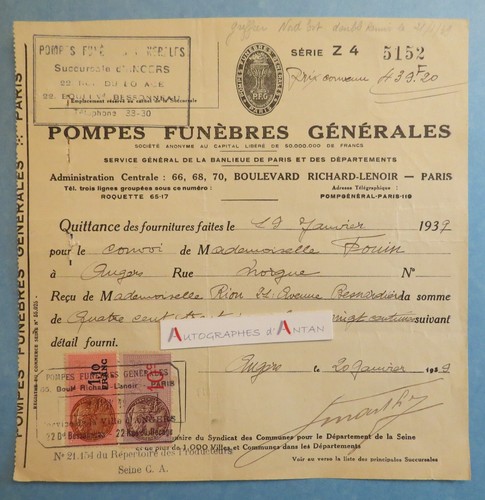 SÉRIE Z 4 5152
439F20
POMPES FUNÈBRES GÉNÉRALES
Succursale d'ANGERS
Emplacement réservé au cachet de la Succursale
Téléphone 33-30
P.F.G.
POMPES FUNÈBRES GÉNÉRALES
SOCIÉTÉ ANONYME AU CAPITAL LIBÉRÉ DE 50.000.000 DE FRANCS
SERVICE GÉNÉRAL DE LA BANLIEUE DE PARIS ET DES DÉPARTEMENTS
Administration Centrale : 66, 68, 70, BOULEVARD RICHARD-LENOIR — PARIS
Tél. trois lignes groupées sous ce numéro :
ROQUETTE 65-17
Adresse Télégraphique :
POMPGÉNÉRAL-PARIS-119
Quittance des fournitures faites le 19 Janvier 1939
pour le convoi de Mademoiselle
à Angers Rue N°
Reçu de Mademoiselle Riou 21 Avenue Besnardière la somme
de Quatre cent vingt centimes suivant
détail fourni.
AUTOGRAPHES D'ANTAN
Angers, le 20 Janvier 1939
1F10
FRANC
POMPES FUNÈBRES GÉNÉRALES
Boult Richard Lenoir PARIS
du Syndicat des Communes pour le Département de la Seine
de plus de 1.000 Villes et Communes dans les Départements
N° 21.454 du Répertoire des Producteurs
Seine G. A.
Voir au verso la liste des principales Succursales
POMPES FUNÈBRES GÉNÉRALES PARIS